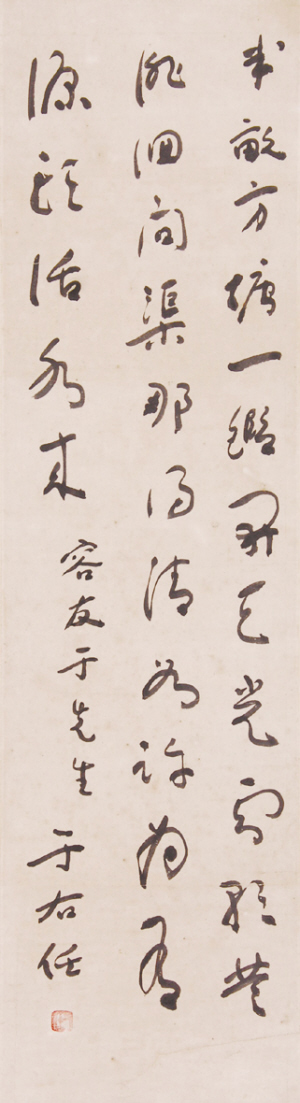 半畝方塘一鑑開天光雲影共
徘徊問渠那得清如許為有
源頭活水來 容友于先生 于右任